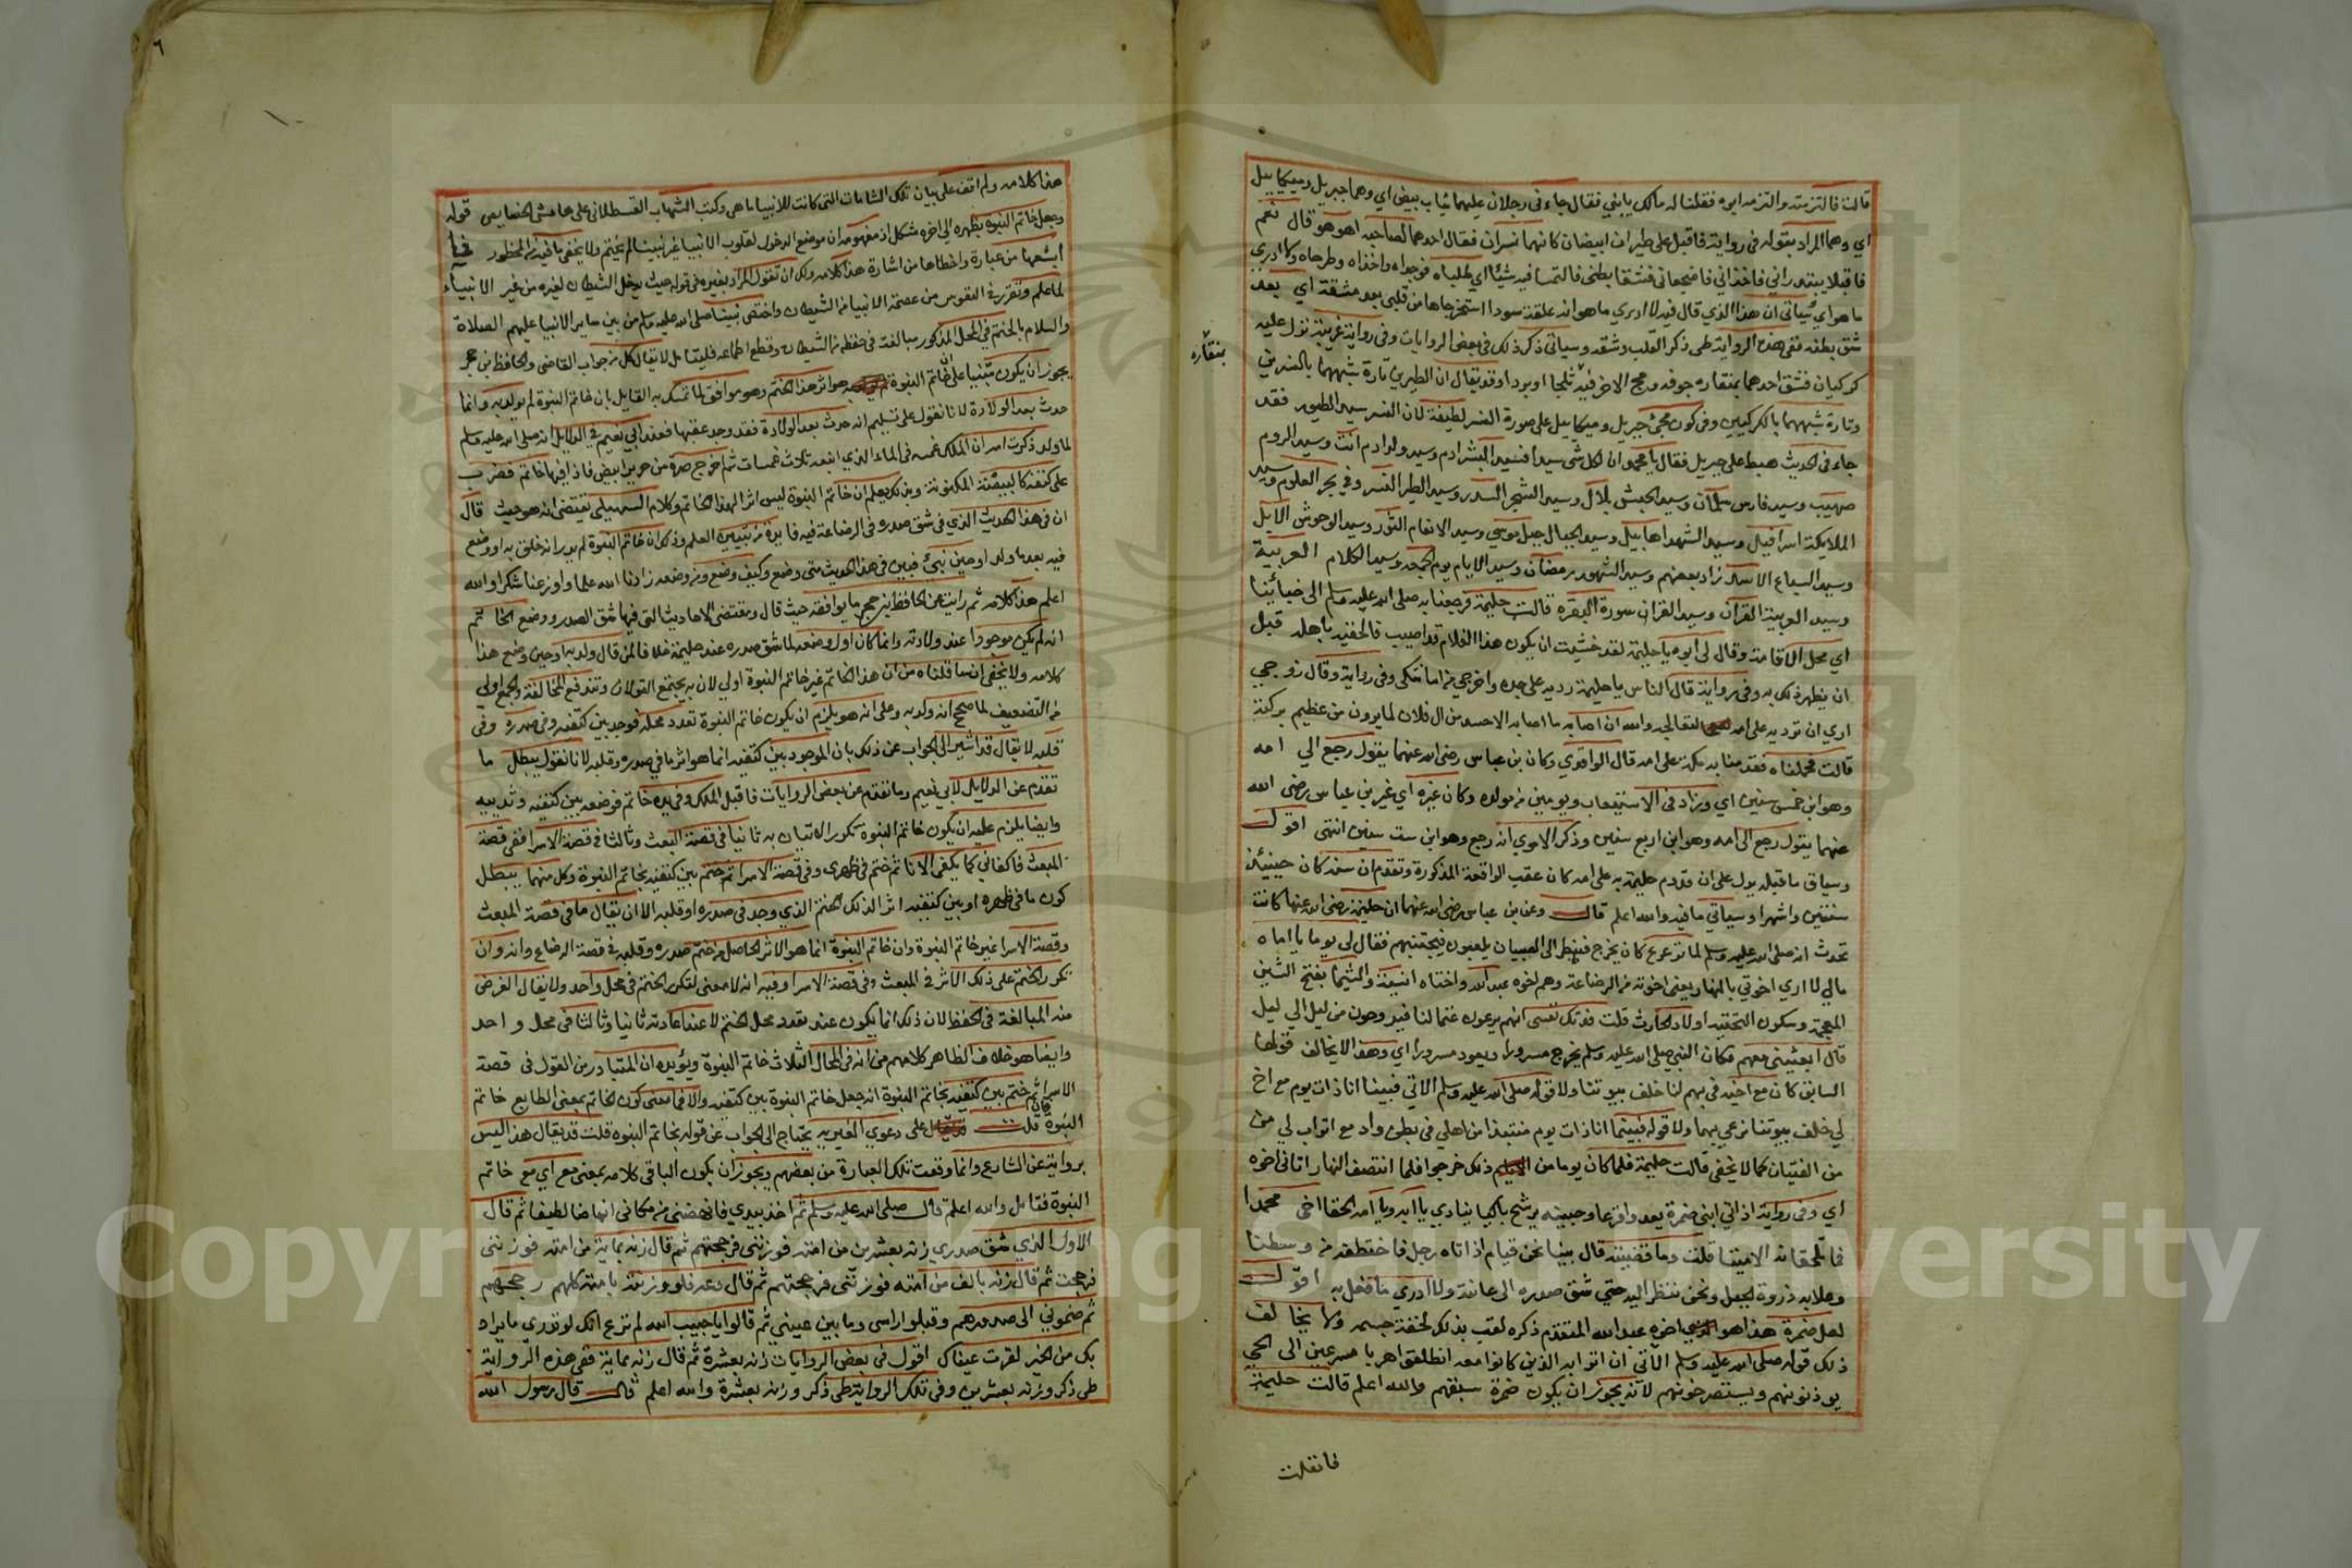 قالت فالتزمته والتزمه ابوه فقلنا له مالك يا بني فقال جاءني رجلان عليهما ثياب بيض اي وهما جبريل وميكاييل
اي وهما المراد بقوله في رواية فاقبل علي طيران ابيضان كانهما نسران فقال احدهما لصاحبه اهو هو قال نعم
فاقبلا يبتدراني فاخذاني فاضجعاني فشقا بطني فالتمسا فيه شيئا اي طلباه فوجداه واخذاه وطرحاه ولا ادري
ما هو اي سياتي ان هذا الذي قال فيه لا ادري ما هو انه علقة سودا استخرجاها من قلبي بعد مشقة اي بعد
شق بطنه ففي هذه الرواية طي ذكر القلب وشقه وسياتي ذكر ذلك في بعض الروايات وفي رواية غريبة نزل عليه
كركيان فشق احدهما بمنقاره جوفه ومج الاخر فيه ثلجا او بردا وقد يقال ان الطيرين تارة شبههما بالنسرين
وتارة شبههما بالكركيين وفي كون مجئ جبريل وميكاييل على صورة النسر لطيفة لان النسر سيد الطيور فقد
جاء في الحديث هبط علي جبريل فقال يا محمد ان لكل شي سيدا فسيد البشر ادم وسيد ولد ادم انت وسيد الروم
صهيب وسيد فارس سلمان وسيد الحبش بلال وسيد الشجر السدر وسيد الطير النسر وفي بحر العلوم وسيد
الملايكة اسرافيل وسيد الشهدا هابيل وسيد الجبال جبل موسي وسيد الانعام الثور وسيد الوحوش الايل
وسيد السباع الاسد زاد بعضهم وسيد الشهور رمضان وسيد الايام يوم الجمعه وسيد الكلام العربية
وسيد العربية القران وسيد القران سورة البقره قالت حليمة فرجعنا به صلى الله عليه وسلم الى خبائنا
اي محل الاقامة وقال لي ابوه يا حليمة لقد خشيت ان يكون هذا الغلام قد اصيب فالحقيه باهله قبل
ان يظهر ذلك به وفي رواية قال الناس يا حليمة رديه على جده واخرجي من امانتك وفي رواية وقال زوجي
اري ان ترديه على امه لتعالجه والله ان اصابه ما اصابه الا حسد من ال فلان لما يرون من عظيم بركته
قالت فحملناه فقدمنا به مكة على امه قال الواقدي وكان بن عباس رضي الله عنهما يقول رجع الي امه
وهو ابن خمس سنين اي وزاد في الاستيعاب ويومين من مولده وكان غيره اي غير بن عباس رضى الله
عنهما يقول رجع الى امه وهو ابن اربع سنين وذكر الاموي انه رجع وهو ابن ست سنين انتهى اقول
وسياق ما قبله يدل على ان قدوم حليمة به على امه كان عقب الواقعة المذكورة وتقدم ان سنه كان حينئذ
سنتين واشهرا وسياتي ما فيه والله اعلم قال وعن بن عباس رضي الله عنهما ان حليمة رضي الله عنها كانت
تحدث انه صلى الله عليه وسلم لما ترعرع كان يخرج فينظر الى الصبيان يلعبون فيجتنبهم فقال لي يوما يا اماه
مالي لا اري اخوتي بالنهار يعني اخوته من الرضاعة وهم اخوه عبد الله واختاه انيسة والشيما بفتح الشين
المعجمة وسكون التحتيه اولاد الحارث قلت فدتك نفسي انهم يرعون غنما لنا فيروحون من ليل الي ليل
قال ابعثيني معهم فكان النبي صلى الله عليه وسلم يخرج مسرورا ويعود مسرورا اي وهذا لا يخالف قولها
السابق كان مع اخيه في بهم لنا خلف بيوتنا ولا قوله صلى الله عليه وسلم الاتي فبينا انا ذات يوم مع اخ
لي خلف بيوتنا نرعي بهما ولا قوله فبينما انا ذات يوم منتبذا من اهلي في بطن واد مع اتراب لي من
من الفتيان كما لا يخفي قالت حليمة فلما كان يوما من ذلك خرجوا فلما انتصف النهار اتاني اخوه
اي وفي رواية اذ اتي ابني ضمرة يعدو فزعا وجبينه يرشح باكيا ينادي يا ابه ويا امه الحقا اخي محمدا
فما تلحقانه الا ميتا قلت وما قضيته قال بينا نحن قيام اذ اتاه رجل فاختطفه من وسطنا
وعلا به ذروة الجبل ونحن ننظر اليه حتى شق صدره الى عانته ولا ادري ما فعل به اقول
لعل ضمرة هذا هو اخوه عبد الله المتقدم ذكره لقب بذلك لخفة جسمه ولا يخالف
ذلك قوله صلى الله عليه وسلم الاتي ان اترابه الذين كانوا معه انطلقوا هربا مسرعين الى الحي
يوذنونهم ويستصرخونهم لانه يجوز ان يكون ضمرة سبقهم والله اعلم قالت حليمة
بمنقاره
فانطلقت
٦
هذا كلامه ولم اقف على بيان تلك الشامات التي كانت للانبياء ما هي وكتب الشهاب القسطلاني على هامش الخصايص قوله
وجعل خاتم النبوة بظهره الى اخره مشكل اذ مفهومه ان موضع الدخول لقلوب الانبيا غير نبينا لم يختم ولا يخفى ما فيه من المحظور فما
ابشعها من عبارة واخطاها من اشارة هذا كلامه ولك ان تقول المراد بغيره في قوله حيث يدخل الشيطان لغيره من غير الانبياء
لما علم وتقرر في النفوس من عصمة الانبيا من الشيطان واختص نبينا صلى الله عليه وسلم من بين ساير الانبيا عليهم الصلاة
والسلام بالختم في المحل المذكور مبالغة في حفظه من الشيطان وقطع اطماعه فليتامل لا يقال كل من جواب القاضي والحافظ بن حجر
يجوز ان يكون مبنيا على ان خاتم النبوة هو اثر هذا الختم وهو موافق لما تمسك به القايل بان خاتم النبوة لم يولد به وانما
حدث بعد الولادة لانا نقول على تسليم انه حدث بعد الولادة فقد وجد عقبها فعند ابي نعيم في الدلايل انه صلى الله عليه وسلم
لما ولد ذكرت امه ان الملك غمسه في الماء الذي انبعه ثلاث غمسات ثم اخرج صرة من حرير ابيض فاذا فيها خاتم فضرب
على كتفه كالبيضة المكنونة وبذلك يعلم ان خاتم النبوة ليس اثرا لهذا الخاتم وكلام السهيلي يقتضي انه هو حيث قال
ان في هذا الحديث الذي في شق صدره في الرضاعة فيه فايدة من تبيين العلم وذلك ان خاتم النبوة لم يدر انه خلق به او وضع
فيه بعد ما ولد او حين نبئ فبين في هذا الحديث متى وضع وكيف وضع ومن وضعه زادنا الله علما واوزعنا شكرا والله
اعلم هذا كلامه ثم رايت عن الحافظ ابن حجر ما يوافقه حيث قال ومقتضى الاحاديث التي فيها شق الصدر ووضع الخاتم
انه لم يكن موجودا عند ولادته وانما كان اول وضعه لما شق صدره عند حليمة خلافا لمن قال ولد به او حين وضع هذا
كلامه ولا يخفى ان ما قلناه من ان هذا الخاتم غير خاتم النبوة اولى لان به يجتمع القولان وتندفع المخالفة والجمع اولى
من التضعيف لما صح انه ولد به وعلى انه هو يلزم ان يكون خاتم النبوة تعدد محله فوجد بين كتفيه وفي صدره وفي
قلبه لا يقال قد اشير الى الجواب عن ذلك بان الموجود بين كتفيه انما هو اثر ما في صدره وقلبه لانا نقول يبطله ما
تقدم عن الدلايل لابي نعيم وما تقدم عن بعض الروايات فاقبل الملك وفي يده خاتم فوضعه بين كتفيه وثدييه
وايضا يلزم عليه ان يكون خاتم النبوة تكرر الاتيان به ثانيا في قصة البعث وثالثا في قصة الاسرا ففي قصة
المبعث فاكفاني كما يكفى الانا ثم ختم في ظهري وفي قصة الاسرا ثم ختم بين كتفيه بخاتم النبوة وكل منهما يبطل
كون ما في ظهره او بين كتفيه اثرا لذلك الختم الذي وجد في صدره او قلبه الا ان يقال ما في قصة المبعث
وقصة الاسرا غير خاتم النبوة وان خاتم النبوة انما هو الاثر الحاصل من ختم صدره وقلبه في قصة الرضاع وانه وان
تكرر الختم على ذلك الاثر في المبعث وفي قصة الاسرا وفيه انه لا معنى لتكرر الختم في محل واحد ولا يقال الغرض
منه المبالغة في الحفظ لان ذلك انما يكون عند تعدد محل الختم لا عند اعادته ثانيا وثالثا في محل واحد
وايضا هو خلاف الظاهر كلامهم من انه في المحال الثلاث خاتم النبوة ويؤيده ان المتبادر من القول في قصة
الاسرا ثم ختم بين كتفيه بخاتم النبوة انه جعل خاتم النبوة بين كتفيه والا فما معنى كون الخاتم بمعنى الطابع خاتم
النبوة قلت على دعوي الغيرية يحتاج الى الجواب عن قوله بخاتم النبوه قلت قد يقال هذا ليس
برواية عن الشارع وانما وقعت تلك العبارة من بعضهم ويجوز ان يكون الباقي كلامه بمعنى مع اي مع خاتم
النبوة فتامل والله اعلم قال صلى الله عليه وسلم ثم اخذ بيدي فانهضني من مكاني انهاضا لطيفا ثم قال
الاول الذي شق صدري زنه بعشرين من امته فوزنني فرجحتهم ثم قال زنه بماية من امته فوزنني
فرجحت ثم قال زنه بالف من امته فوزنني فرجحتهم ثم قال دعه فلو وزنته بامته كلهم رجحهم
ثم ضموني الى صدورهم وقبلوا راسي وما بين عيني ثم قالوا يا حبيب الله لم ترع انك لو تدري ما يراد
بك من الخير لقرت عيناك اقول في بعض الروايات زنه بعشرة ثم قال زنه بماية ففي هذه الرواية
طي ذكر وزنه بعشرين وفي تلك الرواية طي ذكر وزنه بعشرة والله اعلم قال قال رسول الله
Copyright © King Saud University